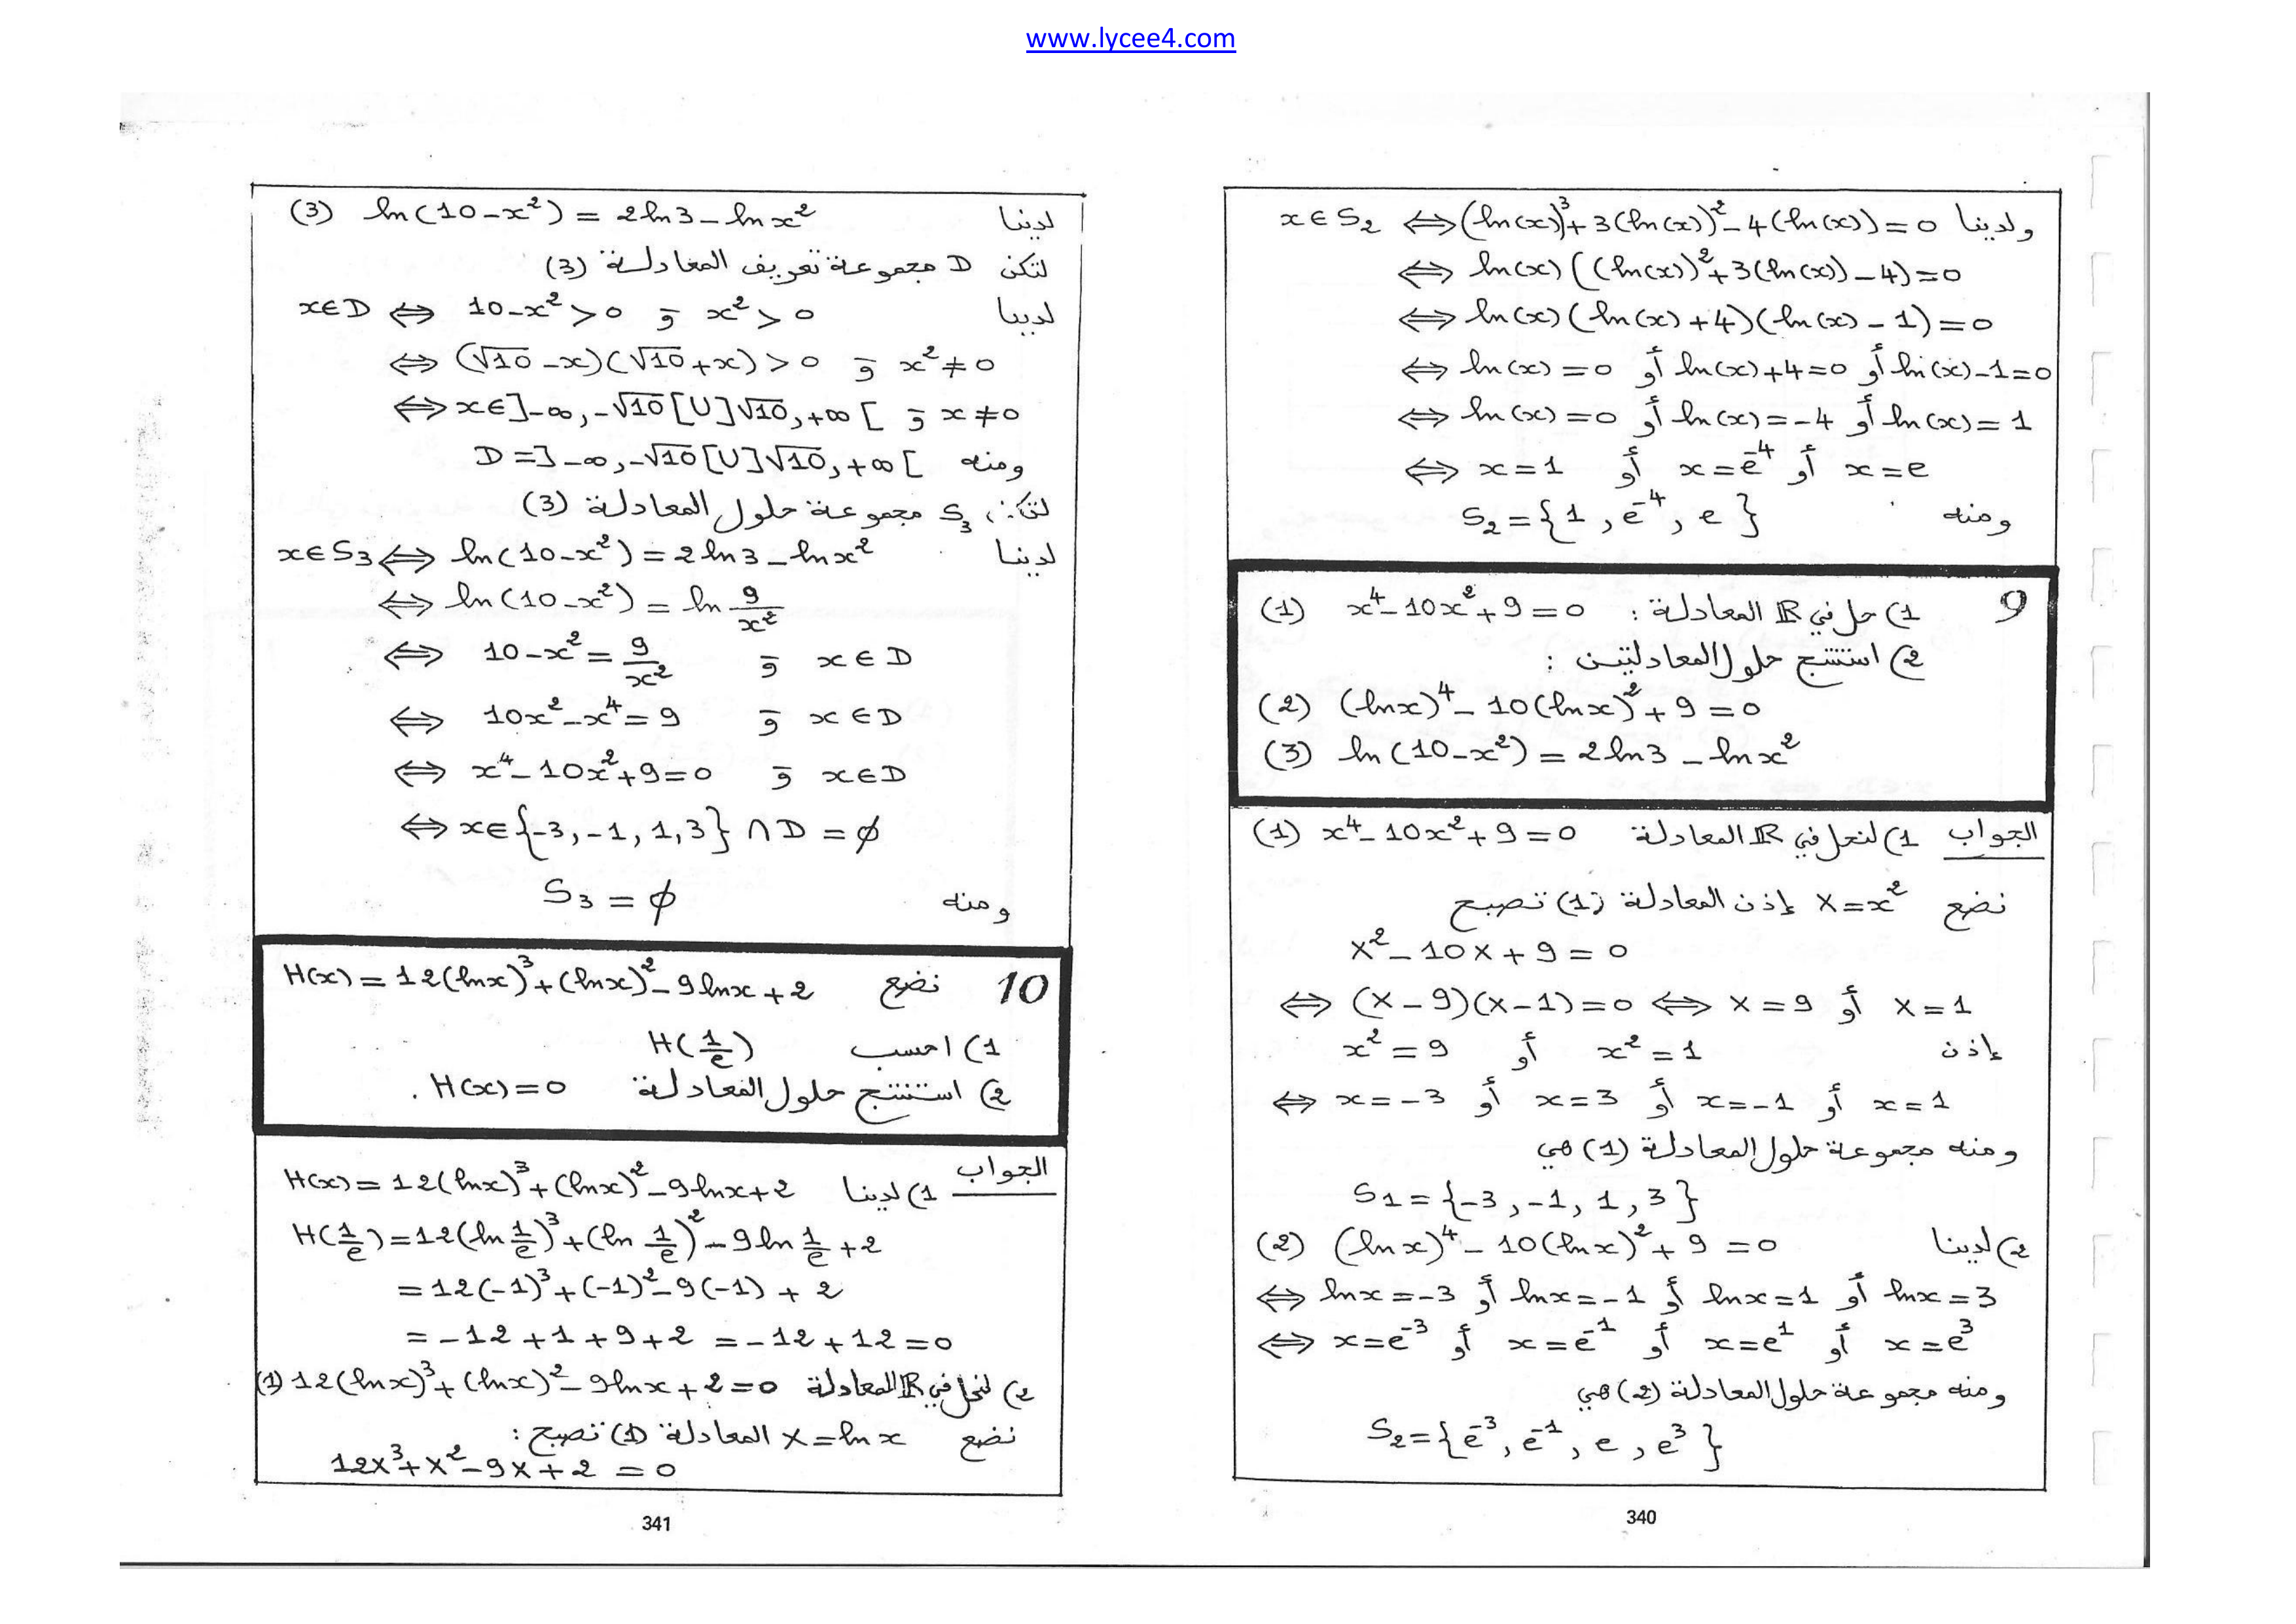 www.lycee4.com
ولدينا x ∈ S₂ ⇔ (ln(x))³ + 3(ln(x))² − 4(ln(x)) = 0
⇔ ln(x)((ln(x))² + 3(ln(x)) − 4) = 0
⇔ ln(x)(ln(x) + 4)(ln(x) − 1) = 0
⇔ ln(x) = 0 أو ln(x) + 4 = 0 أو ln(x) − 1 = 0
⇔ ln(x) = 0 أو ln(x) = −4 أو ln(x) = 1
⇔ x = 1 أو x = e⁻⁴ أو x = e
ومنه S₂ = {1, e⁻⁴, e}
9
1) حل في ℝ المعادلة : x⁴ − 10x² + 9 = 0 (1)
2) استنتج حلول المعادلتين :
(2) (lnx)⁴ − 10(lnx)² + 9 = 0
(3) ln(10 − x²) = 2ln3 − lnx²
الجواب 1) لنحل في ℝ المعادلة x⁴ − 10x² + 9 = 0 (1)
نضع X = x² إذن المعادلة (1) تصبح
X² − 10X + 9 = 0
⇔ (X − 9)(X − 1) = 0 ⇔ X = 9 أو X = 1
إذن x² = 9 أو x² = 1
⇔ x = −3 أو x = 3 أو x = −1 أو x = 1
ومنه مجموعة حلول المعادلة (1) هي
S₁ = {−3, −1, 1, 3}
2) لدينا (lnx)⁴ − 10(lnx)² + 9 = 0 (2)
⇔ lnx = −3 أو lnx = −1 أو lnx = 1 أو lnx = 3
⇔ x = e⁻³ أو x = e⁻¹ أو x = e¹ أو x = e³
ومنه مجموعة حلول المعادلة (2) هي
S₂ = {e⁻³, e⁻¹, e, e³}
340
لدينا ln(10 − x²) = 2ln3 − lnx² (3)
لتكن D مجموعة تعريف المعادلة (3)
لدينا x ∈ D ⇔ 10 − x² > 0 و x² > 0
⇔ (√10 − x)(√10 + x) > 0 و x² ≠ 0
⇔ x ∈ ]−∞, −√10[ ∪ ]√10, +∞[ و x ≠ 0
ومنه D = ]−∞, −√10[ ∪ ]√10, +∞[
لتكن S₃ مجموعة حلول المعادلة (3)
لدينا x ∈ S₃ ⇔ ln(10 − x²) = 2ln3 − lnx²
⇔ ln(10 − x²) = ln 9/x²
⇔ 10 − x² = 9/x² و x ∈ D
⇔ 10x² − x⁴ = 9 و x ∈ D
⇔ x⁴ − 10x² + 9 = 0 و x ∈ D
⇔ x ∈ {−3, −1, 1, 3} ∩ D = ∅
ومنه S₃ = ∅
10 نضع H(x) = 12(lnx)³ + (lnx)² − 9lnx + 2
1) احسب H(1/e)
2) استنتج حلول المعادلة H(x) = 0 .
الجواب
1) لدينا H(x) = 12(lnx)³ + (lnx)² − 9lnx + 2
H(1/e) = 12(ln 1/e)³ + (ln 1/e)² − 9ln 1/e + 2
= 12(−1)³ + (−1)² − 9(−1) + 2
= −12 + 1 + 9 + 2 = −12 + 12 = 0
2) لنحل في ℝ المعادلة 12(lnx)³ + (lnx)² − 9lnx + 2 = 0 (1)
نضع X = lnx المعادلة (1) تصبح :
12X³ + X² − 9X + 2 = 0
341